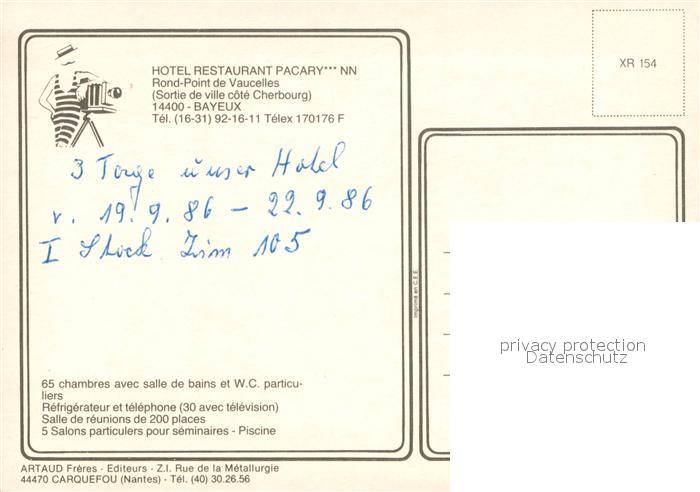 HOTEL RESTAURANT PACARY*** NN
Rond-Point de Vaucelles
(Sortie de ville côté Cherbourg)
14400 - BAYEUX
Tél. (16-31) 92-16-11 Télex 170176 F
XR 154
3 Tage unser Hotel
v. 19.9.86 – 22.9.86
I Stock Zim 105
Imprimé en C.E.E.
privacy protection
Datenschutz
65 chambres avec salle de bains et W.C. particu-
liers
Réfrigérateur et téléphone (30 avec télévision)
Salle de réunions de 200 places
5 Salons particuliers pour séminaires - Piscine
ARTAUD Frères - Editeurs - Z.I. Rue de la Métallurgie
44470 CARQUEFOU (Nantes) - Tél. (40) 30.26.56